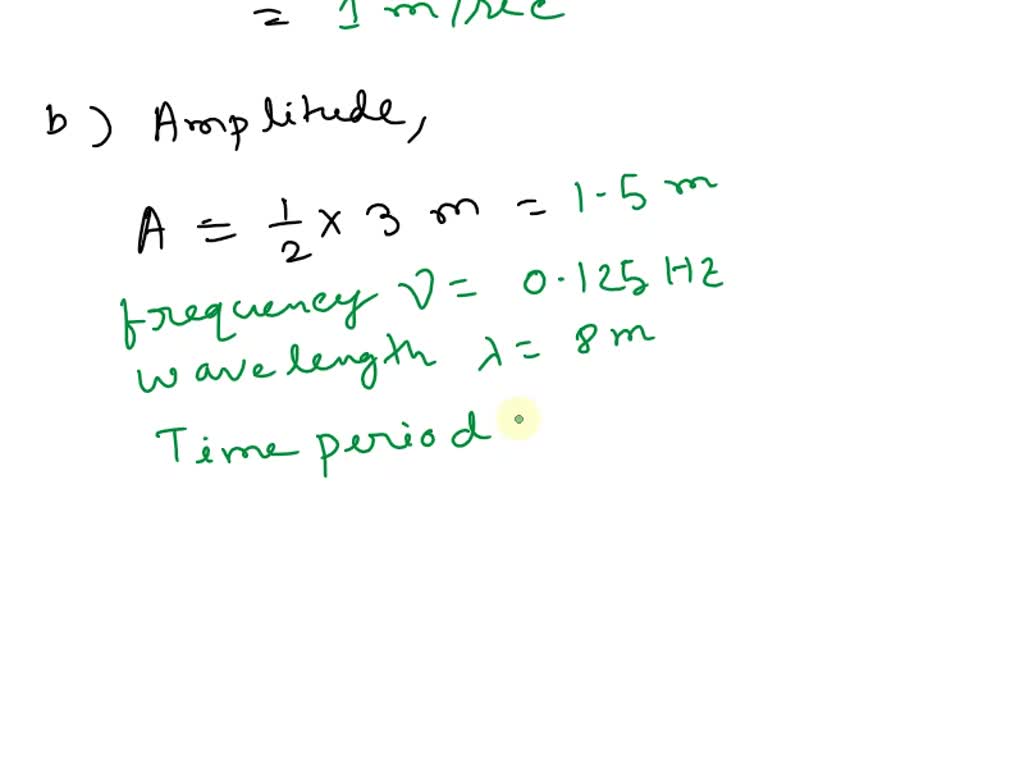 = 1 m/sec
b) Amplitude,
A = 1/2 x 3 m = 1.5 m
frequency ν = 0.125 Hz
wavelength λ = 8 m
Time period